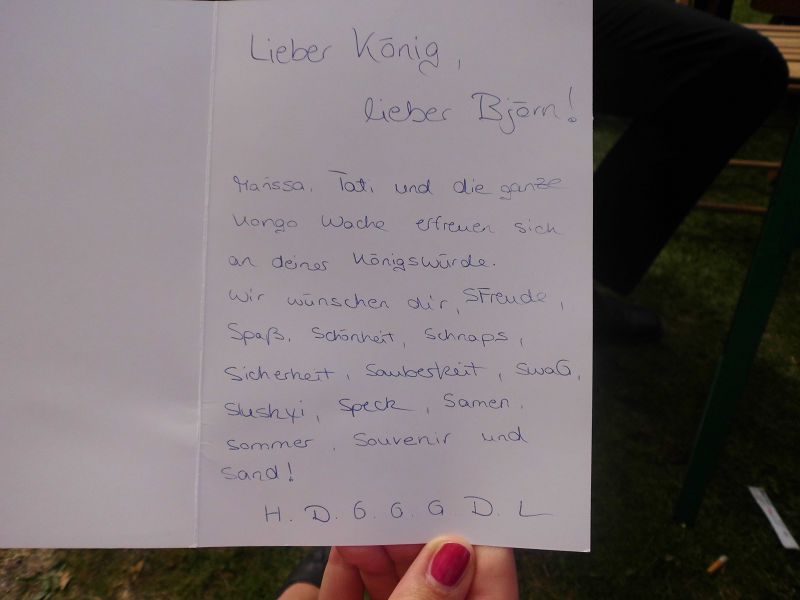 Lieber König,
lieber Björn!
Marissa, Tati und die ganze
Kongo Wache erfreuen sich
an deiner Königswürde.
Wir wünschen dir, SFreude,
Spaß, Schönheit, Schnaps,
Sicherheit, Sauberkeit, SwaG,
Slushyi, Speck, Samen,
Sommer, Souvenir und
Sand!
H. D. G. G. G. D. L